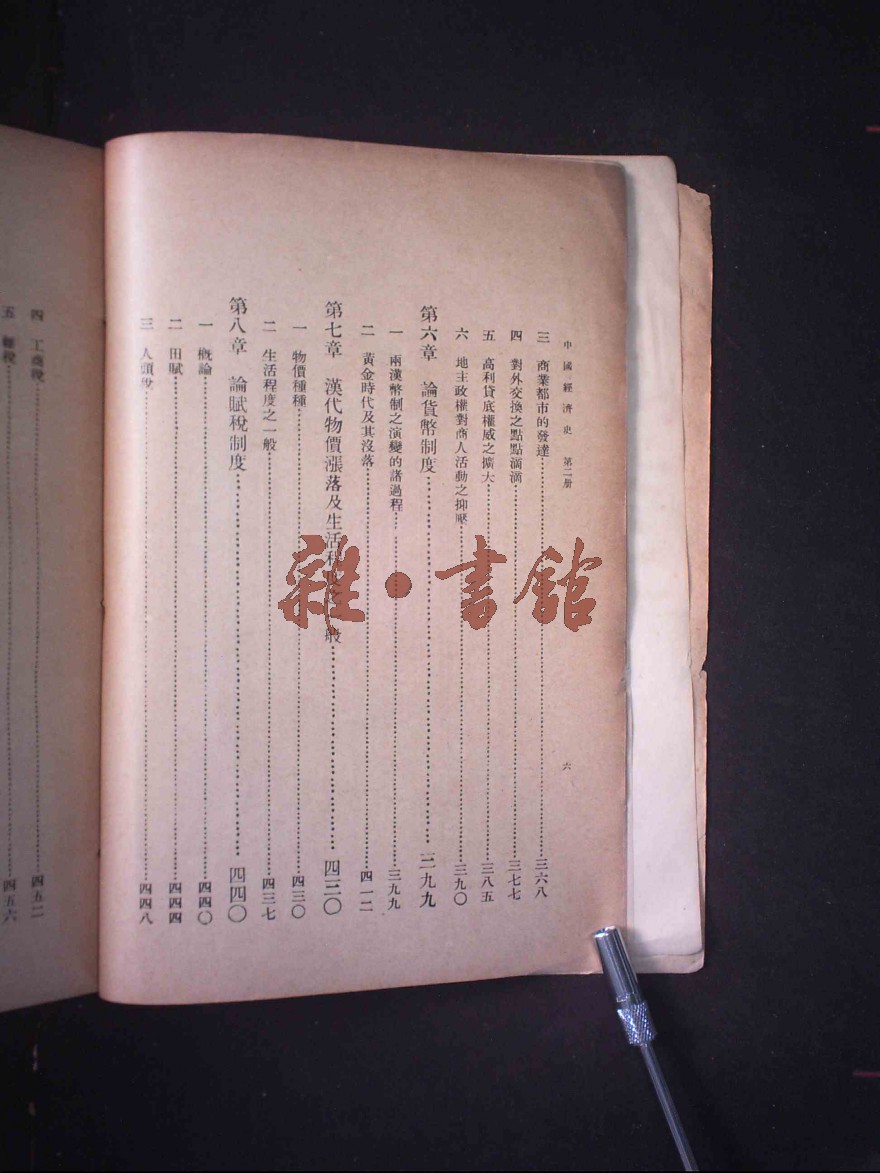 中國經濟史 第二册
六
三 商業都市的發達 三六八
四 對外交換之點點滴滴 三七七
五 高利貸底權威之擴大 三八五
六 地主政權對商人活動之抑壓 三九〇
第六章 論貨幣制度 三九九
一 兩漢幣制之演變的諸過程 三九九
二 黃金時代及其沒落 四一二
第七章 漢代物價漲落及生活程 般 四三〇
一 物價種種 四三〇
二 生活程度之一般 四三七
第八章 論賦稅制度 四四〇
一 概論 四四〇
二 田賦 四四四
三 人頭稅 四四八
四 工商稅 四五二
五 雜稅 四五六
雜·書館